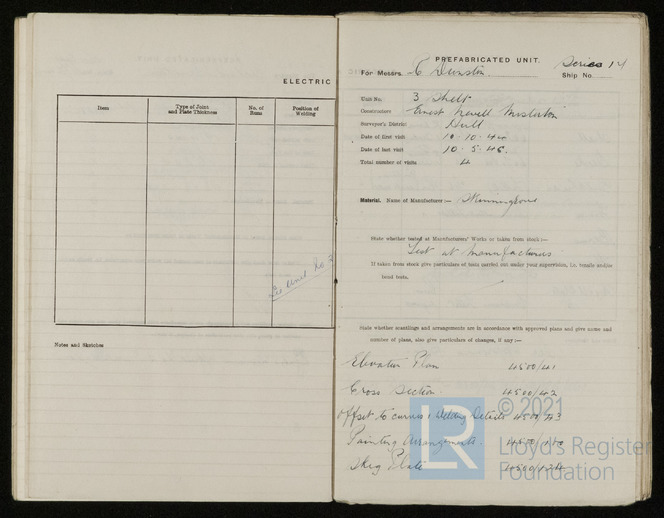 ELECTRIC
Item
Type of Joint
and Plate Thickness
No. of
Runs
Position of
Welding
See Unit No 3
Notes and Sketches
PREFABRICATED UNIT.
Series 14
For Messrs. Dunston. Ship No.
Unit No. 3 Shelt
Constructors Ernest Newell Misterton
Surveyor's District Hull
Date of first visit 10.44
Date of last visit 10.5.45.
Total number of visits 4
Material. Name of Manufacturer:—
State whether tested at Manufacturers' Works or taken from stock:—
Test at Manufacturers
If taken from stock give particulars of tests carried out under your supervision, i.e. tensile and/or
bend tests.
State whether scantlings and arrangements are in accordance with approved plans and give name and
number of plans, also give particulars of changes, if any:—
Elevation Plan 4500/41
Cross Section. 4500/42
Offset to curves & Welding Details 4500/43
Painting Arrangements.
Skeg Plate
© 2021
LR
Lloyd's Register
Foundation